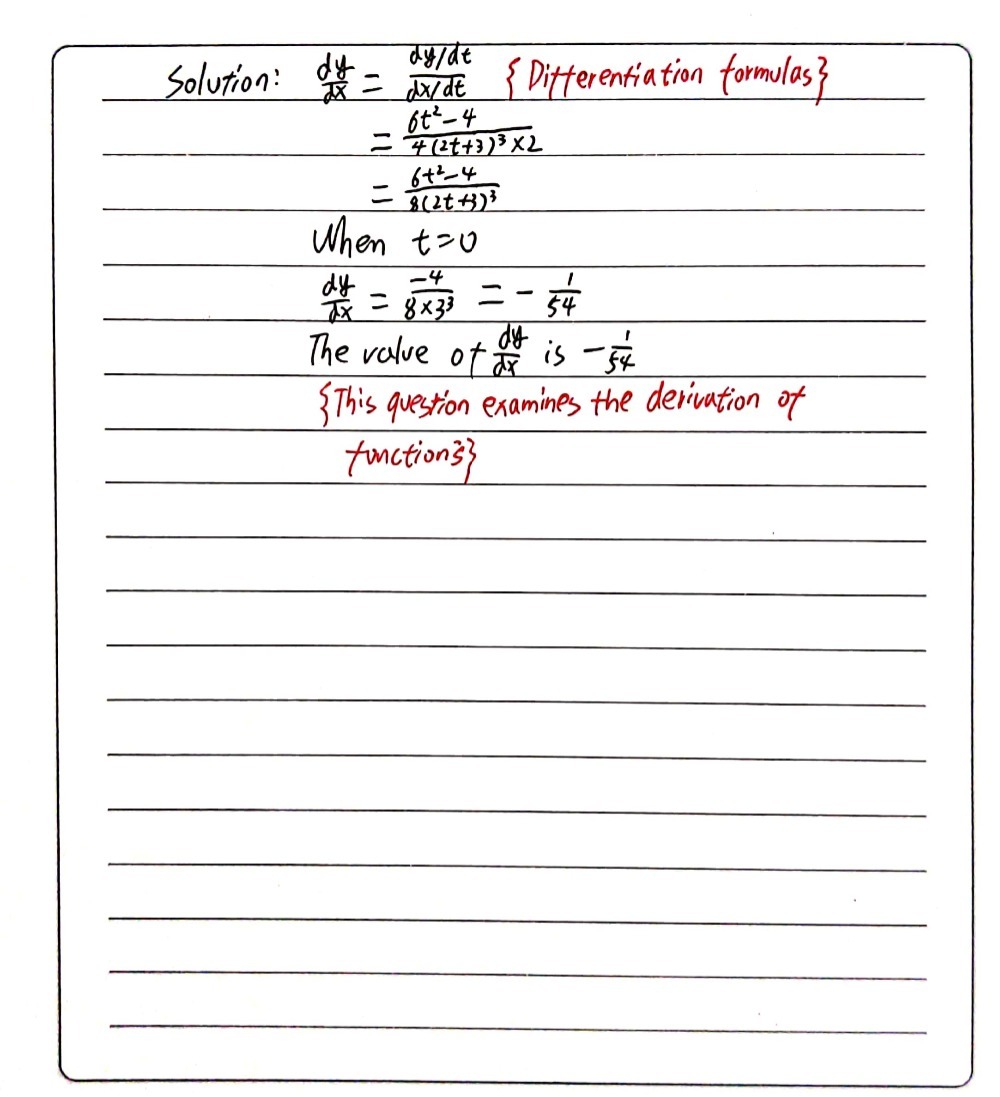 Solution: dy/dx = (dy/dt)/(dx/dt) {Differentiation formulas}
= (6t²-4)/(4(2t+3)³×2)
= (6t²-4)/(8(2t+3)³)
When t=0
dy/dx = -4/(8×3³) = -1/54
The value of dy/dx is -1/54
{This question examines the derivation of
functions}